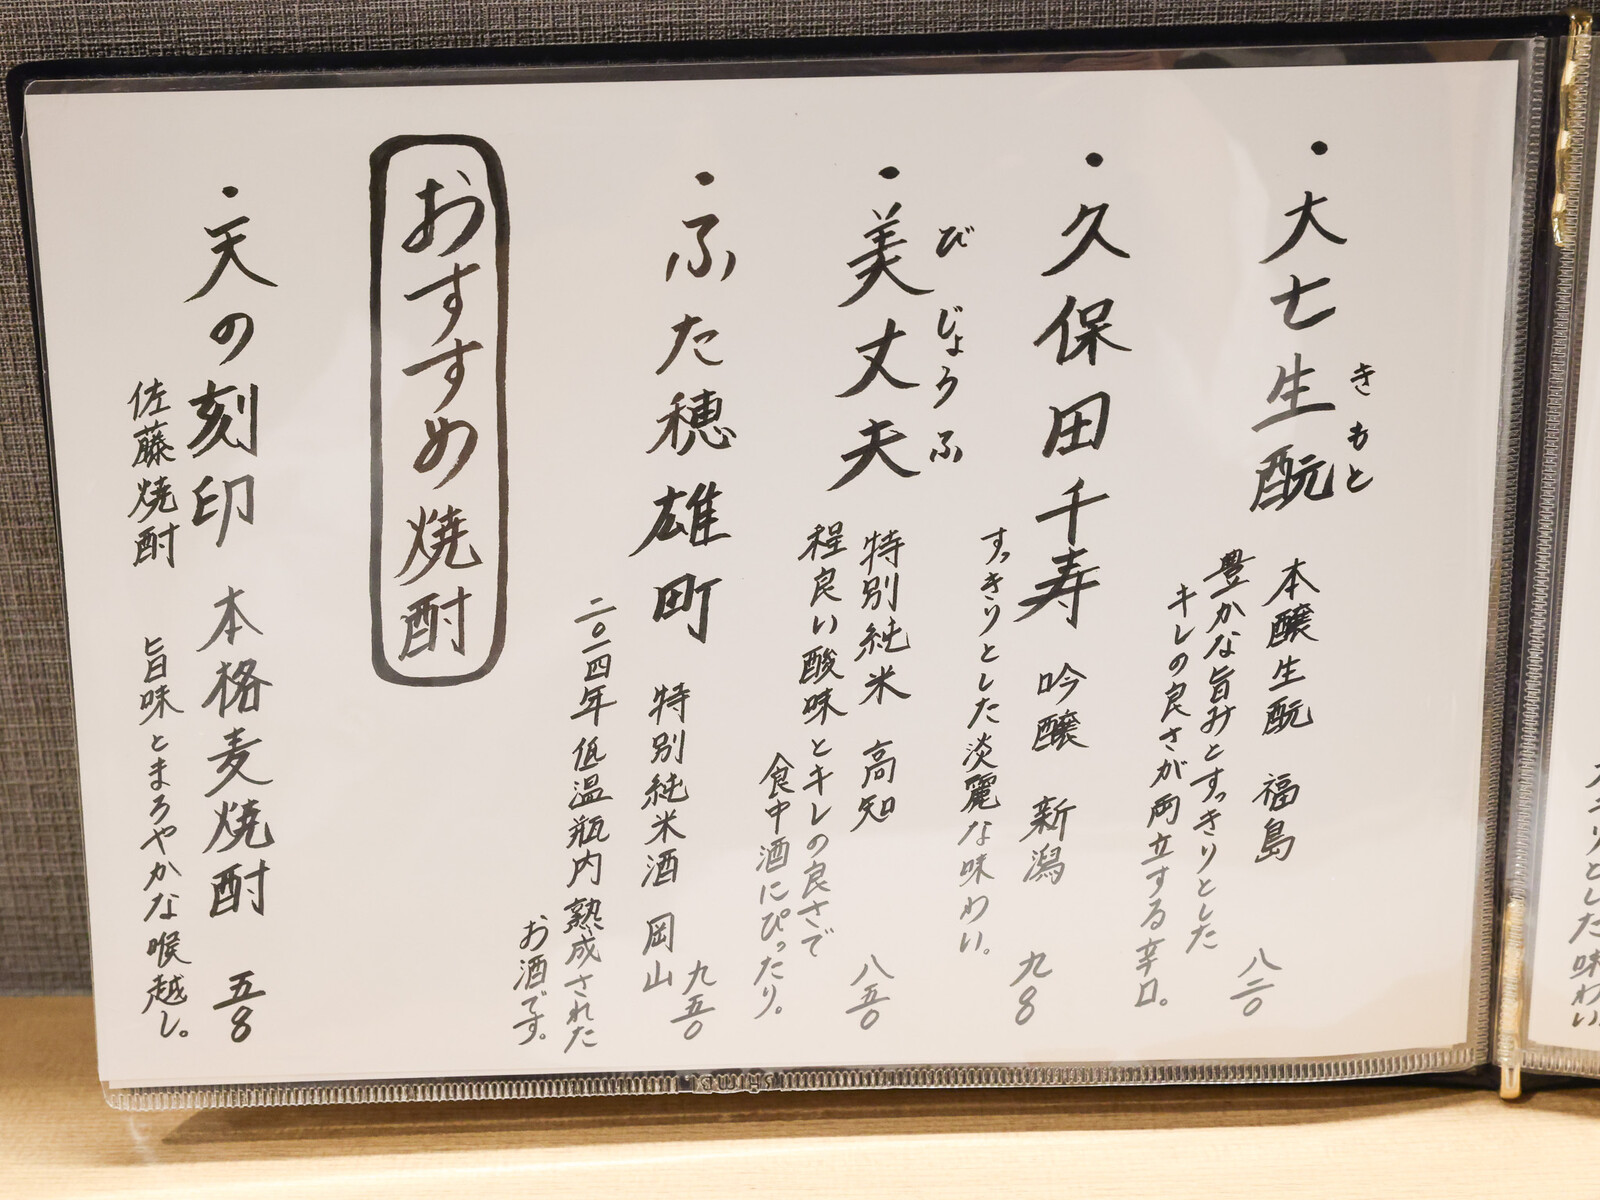 ・大七生酛 本醸生酛 福島 八二〇
きもと
豊かな旨みとすっきりとした
キレの良さが両立する辛口。
・久保田千寿 吟醸 新潟 九〇〇
すっきりとした淡麗な味わい。
・美丈夫 特別純米 高知 八五〇
びじょうふ
程良い酸味とキレの良さで
食中酒にぴったり。
・ふた穂雄町 特別純米酒 岡山 九五〇
二〇一四年低温瓶内熟成された
お酒です。
おすすめ焼酎
・天の刻印 本格麦焼酎 五〇〇
佐藤焼酎 旨味とまろやかな喉越し。